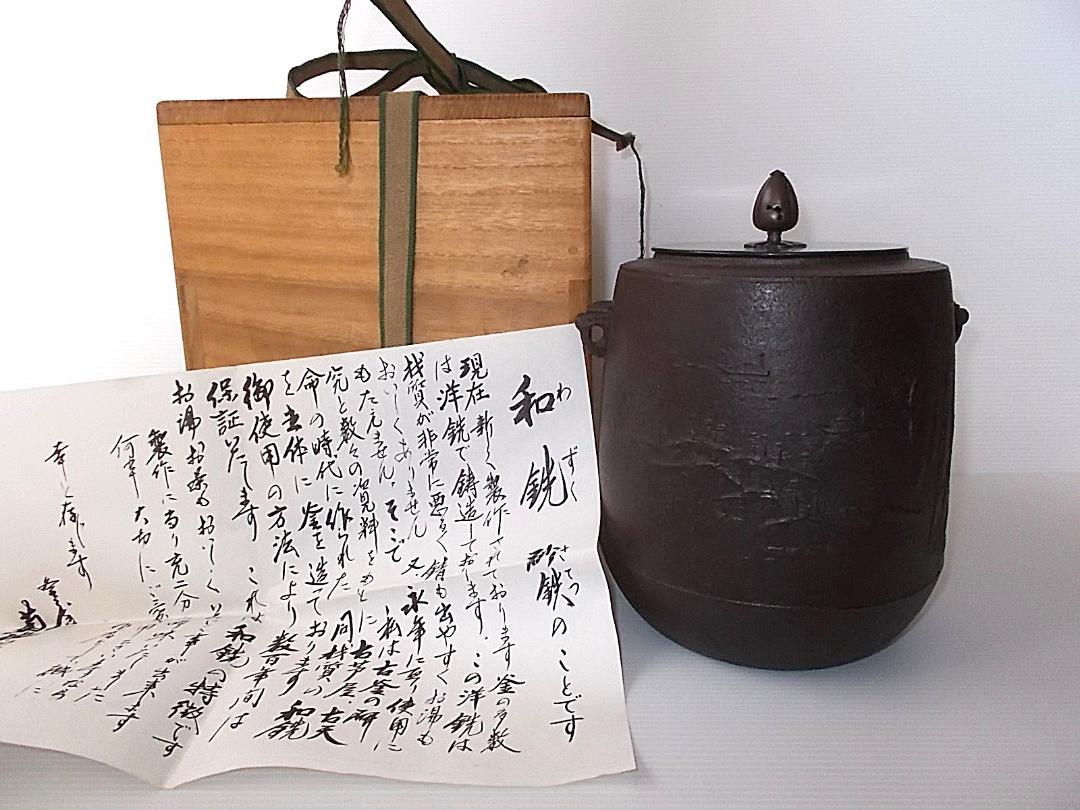 和銑 砂鉄のことです
わずく さてつ
現在新しく製作されております釜の多数
は洋銑で鋳造しております。この洋銑は
材質が非常に悪く錆も出やすくお湯も
おいしくありません 又、永年に亘り使用に
もたえません。そこで 私は古釜の研
究と数々の資料をもとに古芦屋、古天
命の時代に作られた 同材質の和銑
を主体に釜を造っております
御使用の方法により数百年間は
保証いたします これが和銑の特徴です
お湯お茶もおいしく 事が出来ます
製作に当り充分
何卒大切にご
幸と存じます